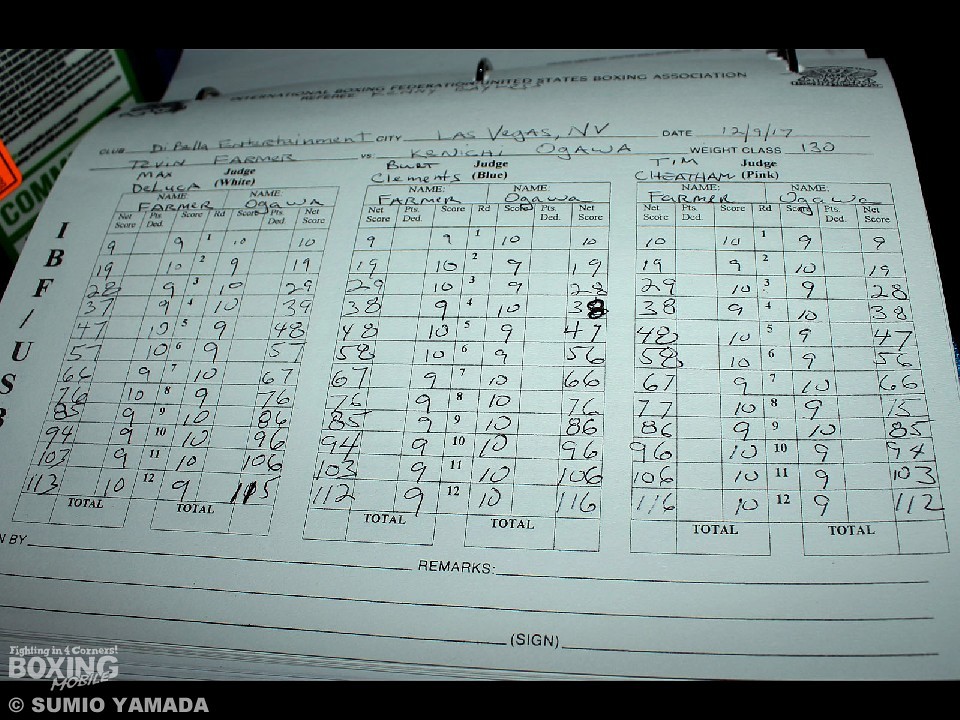 INTERNATIONAL BOXING FEDERATION/UNITED STATES BOXING ASSOCIATION
REFEREE
CLUB DiBella Entertainment CITY LAS Vegas, NV DATE 12/9/17
TEVIN FARMER VS. KENICHI OGAWA WEIGHT CLASS 130
MAX DeLUCA Judge (White) Burt Clements Judge (Blue) TIM CHEATHAM Judge (Pink)
NAME: NAME: NAME: NAME: NAME: NAME:
FARMER Ogawa FARMER Ogawa Farmer Ogawa
Net Score Pts. Ded. Score Rd Score Pts. Ded. Net Score Net Score Pts. Ded. Score Rd Score Pts. Ded. Net Score Net Score Pts. Ded. Score Rd Score Pts. Ded. Net Score
9 9 1 10 10 9 9 1 10 10 10 10 1 9 9
19 10 2 9 19 19 10 2 9 19 19 9 2 10 19
28 9 3 10 29 29 10 3 9 28 29 10 3 9 28
37 9 4 10 39 38 9 4 10 38 38 9 4 10 38
47 10 5 9 48 48 10 5 9 47 48 10 5 9 47
57 10 6 9 57 58 10 6 9 56 58 10 6 9 56
66 9 7 10 67 67 9 7 10 66 67 9 7 10 66
76 10 8 9 76 76 9 8 10 76 77 10 8 9 15
85 9 9 10 86 85 9 9 10 86 86 9 9 10 85
94 9 10 10 96 94 9 10 10 96 96 10 10 9 94
103 9 11 10 106 103 9 11 10 106 106 10 11 9 103
113 10 12 9 115 112 9 12 10 116 116 10 12 9 112
TOTAL TOTAL TOTAL TOTAL TOTAL TOTAL
I
B
F
/
U
S
B
N BY
REMARKS:
(SIGN)
COM
Fighting in 4 Corners!
BOXING
MOBILE
© SUMIO YAMADA